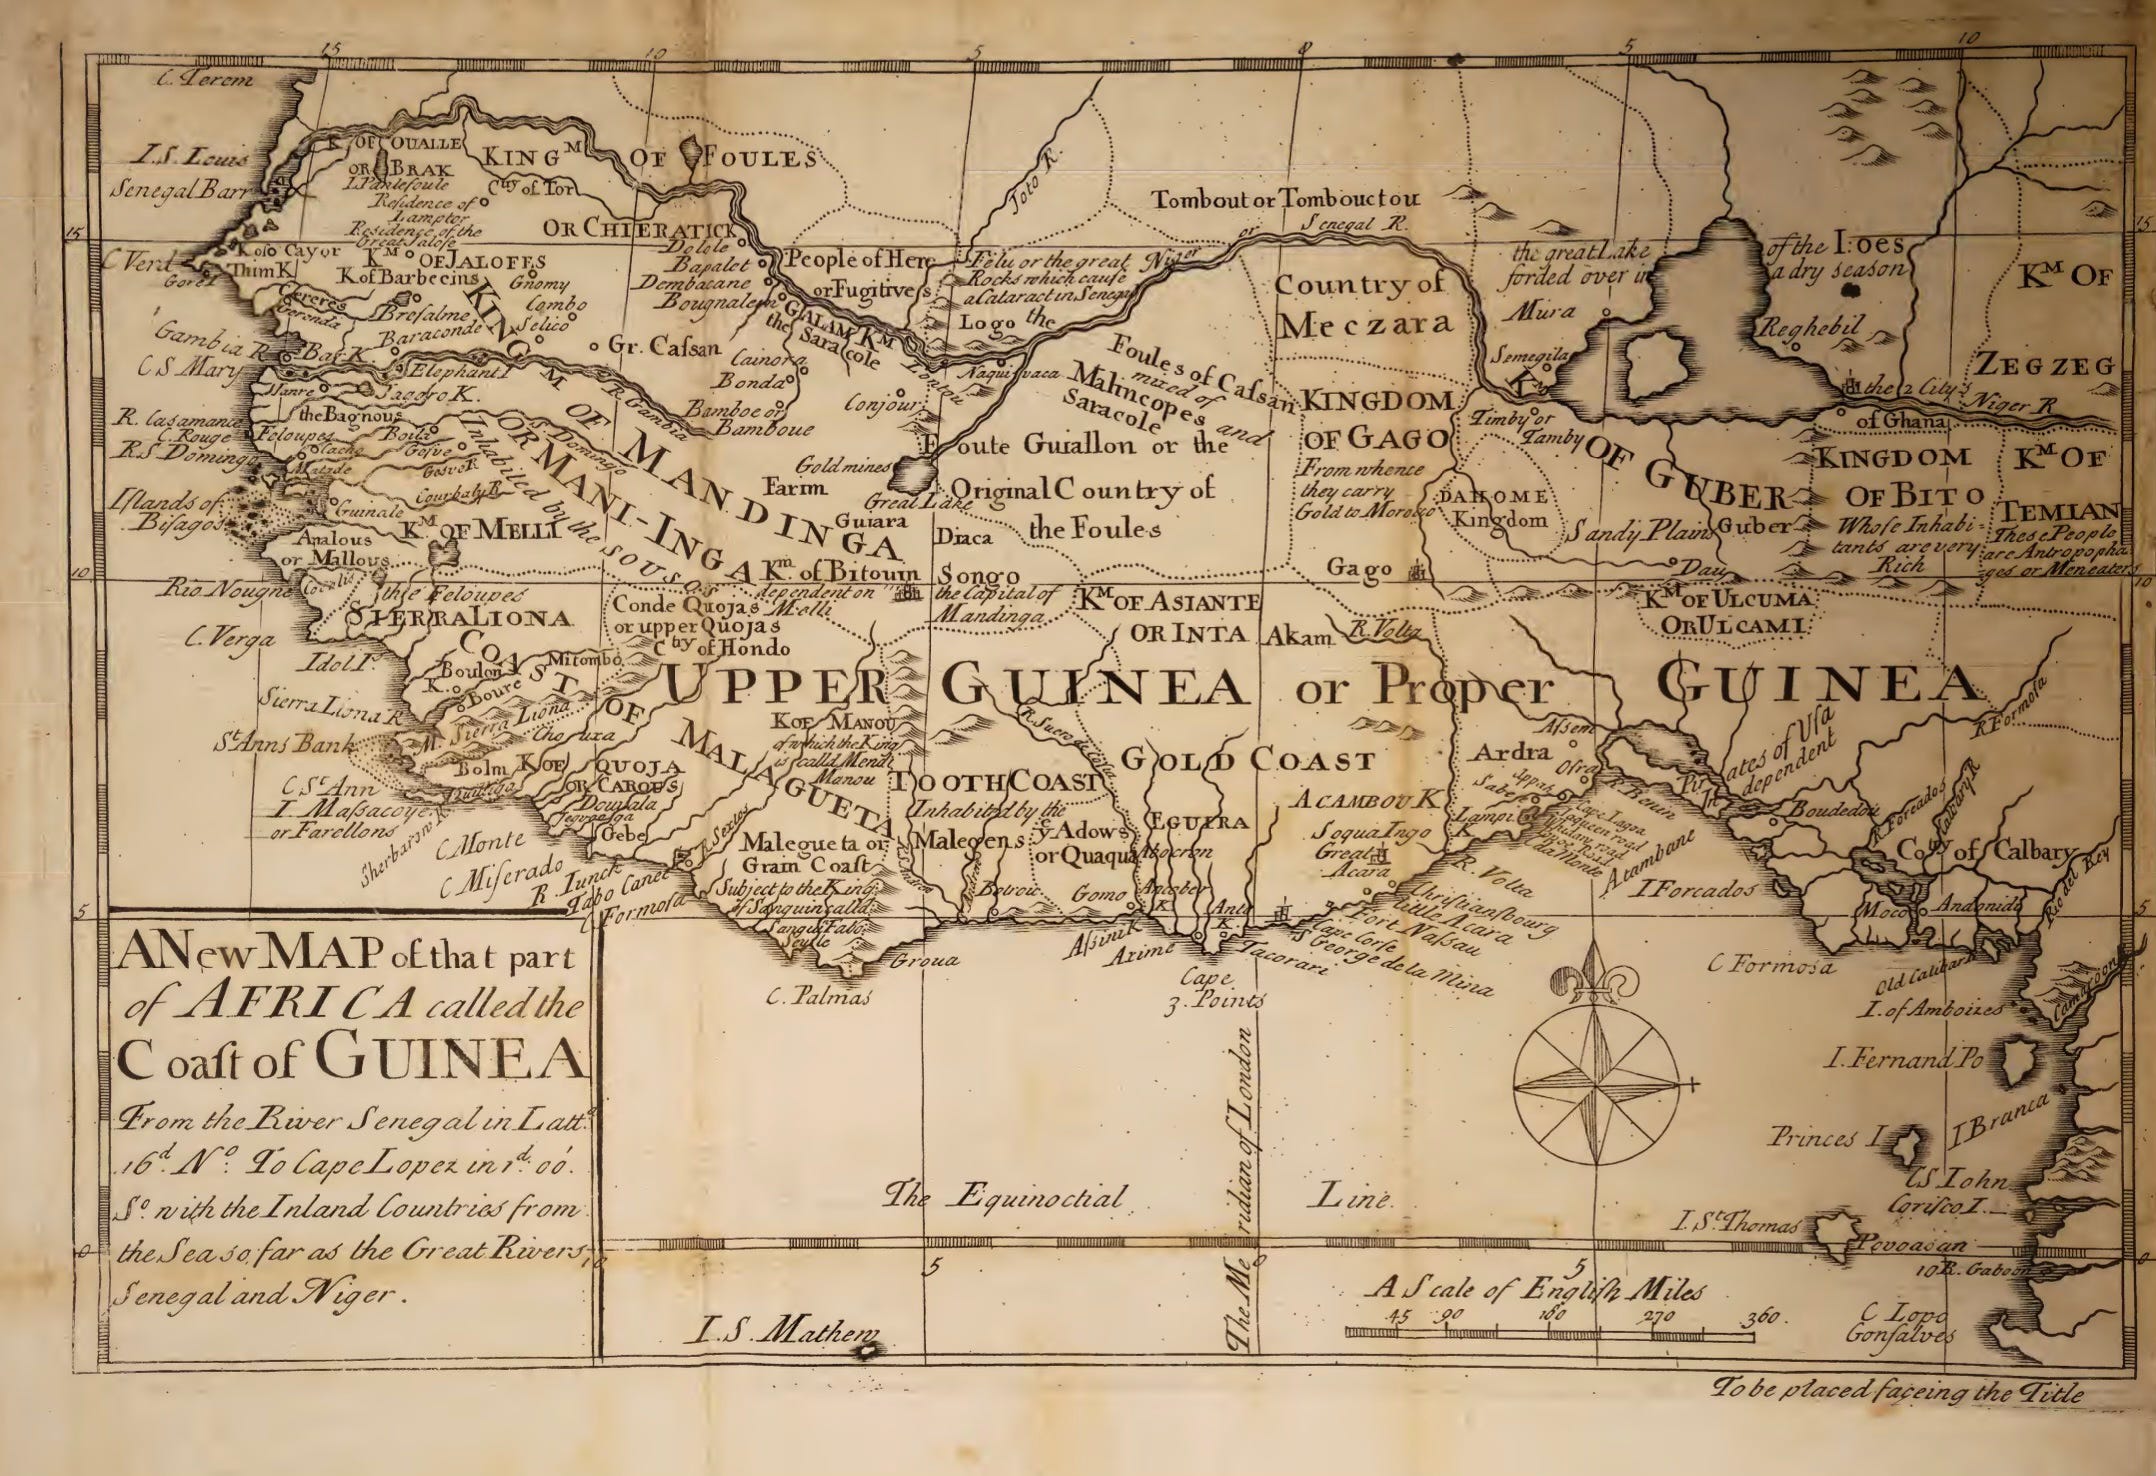 15
10
5
0
5
10
C. Terem
I.S. Louis
Senegal Barr
K OF OUALLE
OR BRAK
I. Pantefoule
Residence of
Lamptor
Residence of the
Great Jalofe
KING M OF FOULES
Cty of Tor
OR CHIERATICK
15
C Verd
Gore I
Koso Cayor
Thim K
K M OF JALOFFS
K of Barbecins
Gnomy
Combo
Selico
Cereres
Geronda
Brefalme
Baraconde
Dolole
Bapalet
Dembacane
Bougnalem
People of Here
or Fugitives
Felu or the great
Rocks which cause
a Cataract in Senega
Toto R.
Tombout or Tombouctou
or Senegal R.
the Niger
the great Lake
forded over in
of the I:oes
a dry season
Mura
Reghebil
Semegila
K M OF
ZEGZEG
Country of
Meczara
Gambia R
C S Mary
Bar K.
Elephant I
Gr. Cafsan
GALAM K M
the Saracole
Logo
Cainora
Bonda
Bamboe or
Bamboue
Conjour
R. Gambia
Foules of Cafsan
mixed of
Malincopes and
Saracole
KINGDOM
OF GAGO
From whence
they carry
Gold to Morocco
Timby or
Tamby
K M OF GUBER
the 2 Citys
of Ghana
Niger R
R. Casamanca
C. Rouge
R S Domingo
Jagoro K.
the Bagnous
Feloupes
Boila
Cacho
S. Domingo
KING M OF MANDINGA
OR MANI-INGA
Inhabited by the SOUSOS
Gold mines
Farim
Great Lake
Guiara
Diaca
Foute Guiallon or the
Original Country of
the Foules
DAHOME
Kingdom
Sandy Plains
Guber
KINGDOM
OF BITO
Whose Inhabi-
tants are very
Rich
K M OF
TEMIAN
These People
are Antropopha
ges or Meneaters
Islands of
Bisagos
Guinale
Courbaly R
K M OF MELLI
Analous
or Mallous
10
10
Rio Nougne
the Feloupes
K m of Bitouin
dependent on
Melli
Songo
the Capital of
Mandinga
Gago
Dau
K M OF ASIANTE
OR INTA
Akam
R. Volta
K M OF ULCUMA
OR ULCAMI
SIERRALIONA
C. Verga
Idol I s
Conde Quojas
or upper Quojas
Cty of Hondo
COAST OF MALAGUETA
Mitombo
Boulon
K.
Boure
Sierra Liona R
M. Sierra Liona
UPPER GUINEA or Proper GUINEA
R. Formosa
St. Anns Bank
Bolm
K OF QUOJA
OR CAROUS
K OF MANOU
of which the King
is calld Mendi
Manou
R. Suero
TOOTH COAST
Inhabited by the
Malegens
y Adows
or Quaqua
GOLD COAST
EGUIRA
ACAMBOU K
Soqua Ingo
Great
Acara
Ardra
Assem
Ofra
Lampi
K
R. Benin
Pirates of Usa
Independent
Boudedou
R. Forcados
Calbary R
C St. Ann
I. Massacoye
or Farellons
Sherbaro R.
C Monte
C Miserado
R. Junck
Tabo Canee
C Formosa
Gebe
R Sextos
Malegueta or
Grain Coast
Subject to the King
of Sanguin calld
Groua
C. Palmas
Betroie
Gomo
Afsinik
Axime
Cape
3. Points
Tacorari
S George de la Mina
Cape Corse
Fort Nassau
little Acara
Christiansbourg
R. Volta
Arambane
I Forcados
Coty of Calbary
Moco
Andonida
Rio del Rey
5
5
C Formosa
Old Calibar
Camaroon
I. of Amboizes
I. Fernand Po
I Branca
Princes I
CS John
Corisco I.
I. St. Thomas
Povoasan
R. Gaboon
C Lopo
Gonsalves
A New MAP of that part
of AFRICA called the
Coast of GUINEA
From the River Senegal in Latt.d
16 d. No. To Cape Lopez in 1 d. 00.
So. with the Inland Countries from
the Sea so far as the Great Rivers
Senegal and Niger.
The Equinoctial Line.
The Meridian of London
0
10
5
0
5
10
0
A Scale of English Miles
45 90 180 270 360.
I. S. Mathew
To be placed faceing the Title